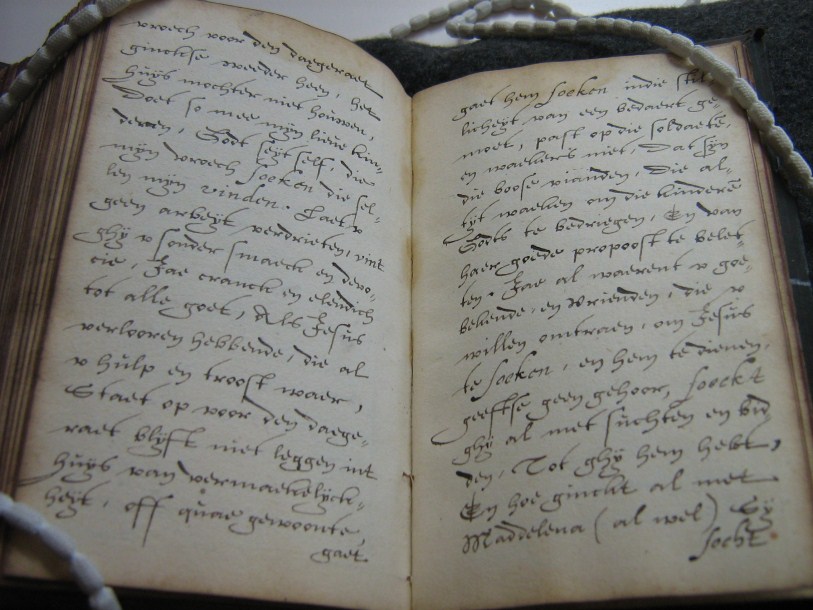 vroech voor den daegeraet
ginckse weeder heen, het
huys mochter niet houwen,
Doet so mee mijn lieve kin=
deren, Godt seyt self, die
mijn vroech soeken die sel=
len mijn vinden. Laet v
geen arbeyt verdrieten, vint
ghij v sonder smaeck en devo=
cie, Jae cranck en elendich
tot alle goet, Als Jesus
verlooren hebbende, die al
v hulp en troost waer,
Staet op voor den daege=
raet blijft niet leggen int
huys van vermaekelijck=
heyt, off quae gewoonte,
gaet
gaet hem soeken indie stil=
licheyt van een bedaert ge=
moet, past op die soldaete,
en waekers niet, dat sijn
die boose vianden, die al=
tijt waeken om die kinders
Godts te bedriegen, En van
haer goede propoost te belet=
ten. Jae al waerent v goe=
bekende, en vrienden, die v
willen ontraen, om Jesus
te soeken, en hem te dienen,
geeftse geen gehoor, soeckt
ghij al met suchten en bid
den, Tot ghij hem hebt,
En hoe ginckt al met
Maddelena (al wel) Sy
socht